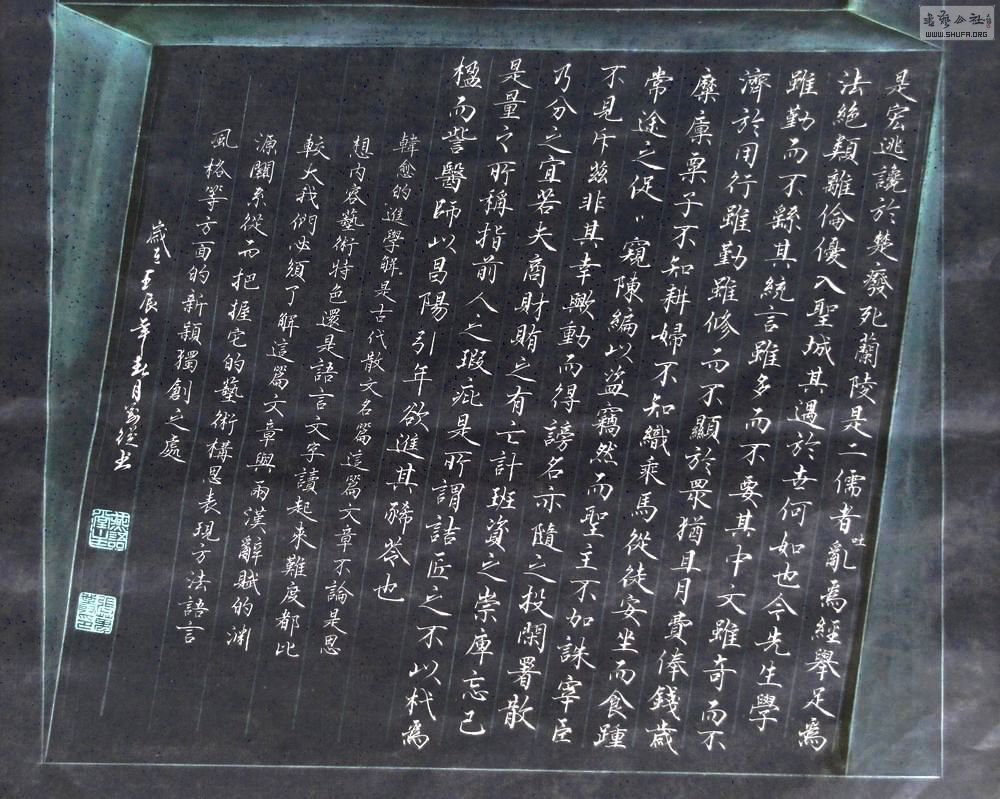 是宏逃讒於楚廢死蘭陵是二儒者吐亂焉經舉足焉
法絕類離倫優入聖城其遇於世何如也今先生學
雖勤而不繇其統言雖多而不要其中文雖奇而不
濟於用行雖勤雖修而不顯於眾猶且月費俸錢歲
糜廩粟子不知耕婦不知織乘馬從徒安坐而食踵
常途之促〃窺陳編以盜竊然而聖主不加誅宰臣
不見斥茲非其幸歟動而得謗名亦隨之投閑置散
乃分之宜若夫商財賄之有亡計班資之崇庫忘己
是量之所稱指前人之瑕疵是所謂詰匠之不以杙焉
楹而訾醫師以昌陽引年欲進其豨苓也
韓愈的進學解是古代散文名篇這篇文章不論是思
想內容藝術特色還是語言文字讀起來難度都比
較大我們必須了解這篇文章與兩漢辭賦的淵
源關系從而把握它的藝術構思表現方法語言
風格等方面的新穎獨創之處
歲次壬辰年春月
書藝公社
WWW.SHUFA.ORG